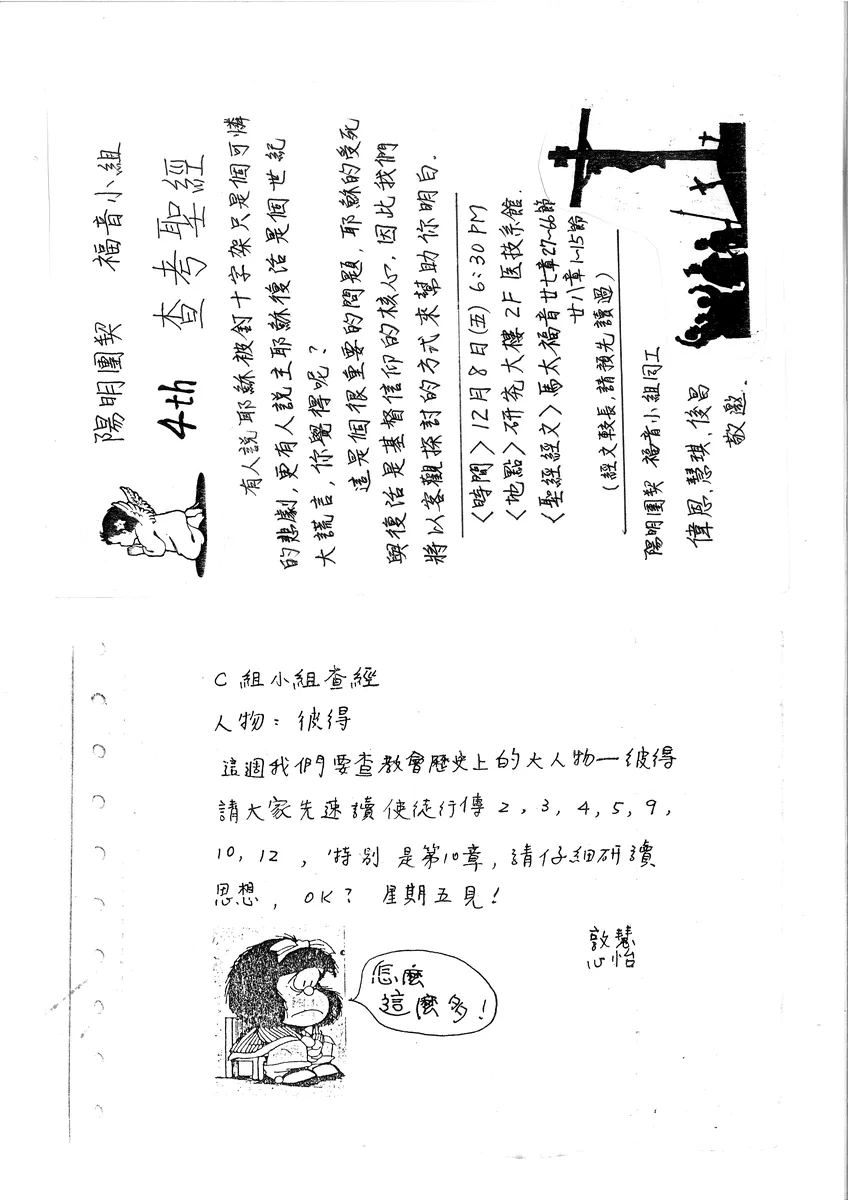 陽明團契 福音小組
4th 查考聖經
有人説耶穌被釘十字架只是個可憐
的悲劇,更有人説主耶穌復活是個世紀
大謊言,你覺得呢?
這是個很重要的問題,耶穌的受死
與復活是基督信仰的核心,因此我們
將以客觀探討的方式來幫助你明白.
〈時間〉12月8日(五) 6:30 PM
〈地點〉研究大樓 2F 医技系館.
〈聖經經文〉馬太福音廿七章27~66節
廿八章1~15節
(經文較長,請預先讀過)
陽明團契 福音小組同工
偉恩.慧琪.俊昌
敬邀.
C 組小組查經
人物: 彼得
這週我們要查教會歷史上的大人物—彼得
請大家先速讀使徒行傳 2, 3, 4, 5, 9,
10, 12 , 特別是第10章, 請仔細研讀
思想, OK? 星期五見!
敦慧
心怡
怎麼
這麼多!